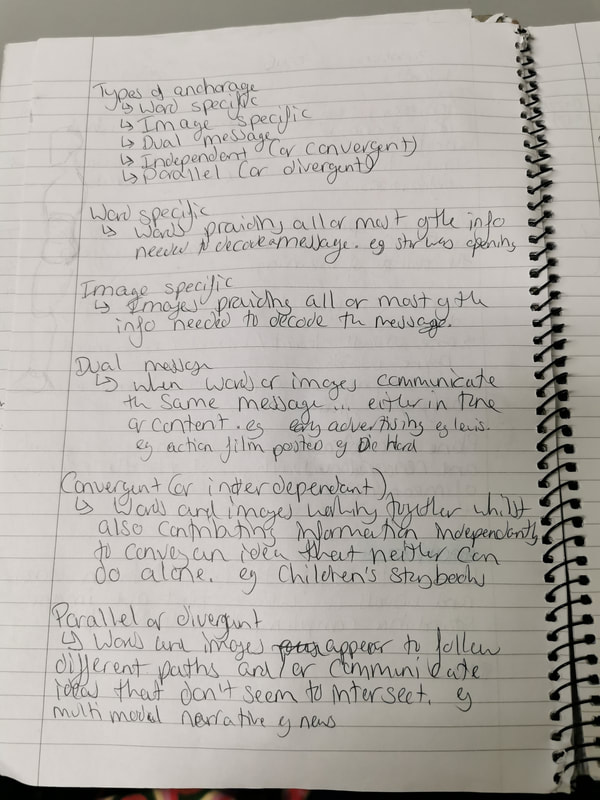 Types of anchorage
↳ Word specific
↳ Image specific
↳ Dual message
↳ Independent (or convergent)
↳ Parallel (or divergent)
Word specific
↳ Words providing all or most of the info
needed to decode a message. eg star wars opening
Image specific
↳ Images providing all or most of the
info needed to decode the message.
Dual message
↳ when words or images communicate
the same message... either in tone
or content. eg advertising eg levis.
eg action film posted eg Die Hard
Convergent (or interdependant)
↳ Words and images working together whilst
also contributing information independantly
to convey an idea that neither can
do alone. eg Children's storybooks
Parallel or divergent
↳ Words and images appear to follow
different paths and/or communicate
ideas that don't seem to intersect. eg
multi modal narrative eg news